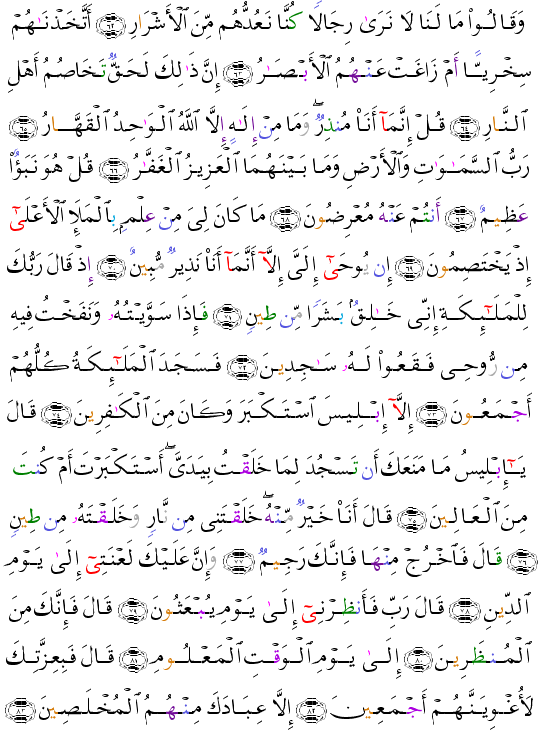 وَقَالُوا۟ مَا لَنَا لَا نَرَىٰ رِجَالًا كُنَّا نَعُدُّهُم مِّنَ ٱلْأَشْرَارِ ﴿٦٢﴾ أَتَّخَذْنَـٰهُمْ
سِخْرِيًّا أَمْ زَاغَتْ عَنْهُمُ ٱلْأَبْصَـٰرُ ﴿٦٣﴾ إِنَّ ذَٰلِكَ لَحَقٌّ تَخَاصُمُ أَهْلِ
ٱلنَّارِ ﴿٦٤﴾ قُلْ إِنَّمَآ أَنَا۠ مُنذِرٌ ۖ وَمَا مِنْ إِلَـٰهٍ إِلَّا ٱللَّهُ ٱلْوَٰحِدُ ٱلْقَهَّارُ ﴿٦٥﴾
رَبُّ ٱلسَّمَـٰوَٰتِ وَٱلْأَرْضِ وَمَا بَيْنَهُمَا ٱلْعَزِيزُ ٱلْغَفَّـٰرُ ﴿٦٦﴾ قُلْ هُوَ نَبَؤٌا۟
عَظِيمٌ ﴿٦٧﴾ أَنتُمْ عَنْهُ مُعْرِضُونَ ﴿٦٨﴾ مَا كَانَ لِىَ مِنْ عِلْمٍۭ بِٱلْمَلَإِ ٱلْأَعْلَىٰٓ
إِذْ يَخْتَصِمُونَ ﴿٦٩﴾ إِن يُوحَىٰٓ إِلَىَّ إِلَّآ أَنَّمَآ أَنَا۠ نَذِيرٌ مُّبِينٌ ﴿٧٠﴾ إِذْ قَالَ رَبُّكَ
لِلْمَلَـٰٓئِكَةِ إِنِّى خَـٰلِقٌۢ بَشَرًا مِّن طِينٍ ﴿٧١﴾ فَإِذَا سَوَّيْتُهُۥ وَنَفَخْتُ فِيهِ
مِن رُّوحِى فَقَعُوا۟ لَهُۥ سَـٰجِدِينَ ﴿٧٢﴾ فَسَجَدَ ٱلْمَلَـٰٓئِكَةُ كُلُّهُمْ
أَجْمَعُونَ ﴿٧٣﴾ إِلَّآ إِبْلِيسَ ٱسْتَكْبَرَ وَكَانَ مِنَ ٱلْكَـٰفِرِينَ ﴿٧٤﴾ قَالَ
يَـٰٓإِبْلِيسُ مَا مَنَعَكَ أَن تَسْجُدَ لِمَا خَلَقْتُ بِيَدَىَّ ۖ أَسْتَكْبَرْتَ أَمْ كُنتَ
مِنَ ٱلْعَالِينَ ﴿٧٥﴾ قَالَ أَنَا۠ خَيْرٌ مِّنْهُ ۖ خَلَقْتَنِى مِن نَّارٍ وَخَلَقْتَهُۥ مِن طِينٍ
﴿٧٦﴾ قَالَ فَٱخْرُجْ مِنْهَا فَإِنَّكَ رَجِيمٌ ﴿٧٧﴾ وَإِنَّ عَلَيْكَ لَعْنَتِىٓ إِلَىٰ يَوْمِ
ٱلدِّينِ ﴿٧٨﴾ قَالَ رَبِّ فَأَنظِرْنِىٓ إِلَىٰ يَوْمِ يُبْعَثُونَ ﴿٧٩﴾ قَالَ فَإِنَّكَ مِنَ
ٱلْمُنظَرِينَ ﴿٨٠﴾ إِلَىٰ يَوْمِ ٱلْوَقْتِ ٱلْمَعْلُومِ ﴿٨١﴾ قَالَ فَبِعِزَّتِكَ
لَأُغْوِيَنَّهُمْ أَجْمَعِينَ ﴿٨٢﴾ إِلَّا عِبَادَكَ مِنْهُمُ ٱلْمُخْلَصِينَ ﴿٨٣﴾